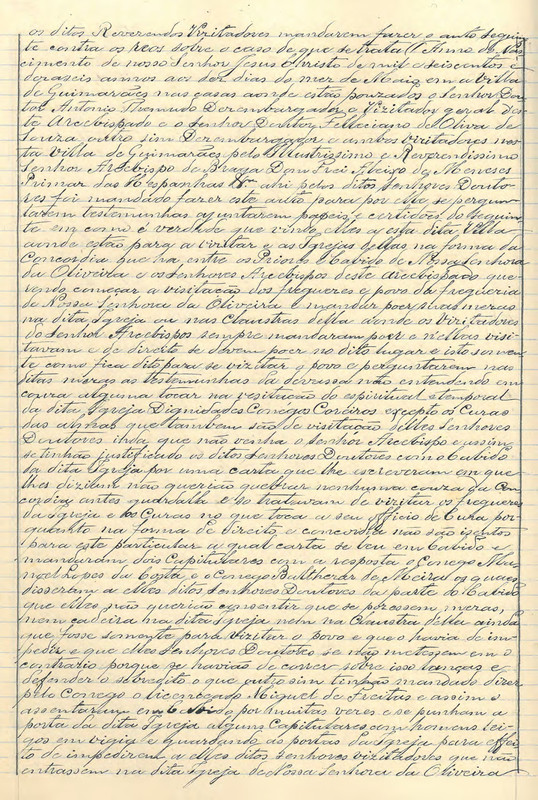 os ditos Reverendos Vizitadores mandarem fazer o auto seguin
te contra os reos sobre o caso de que se trata Anno do Nas
cimento de nosso Senhor Jesus Christo de mil e seiscentos e
dezaseis annos aos dez dias do mez de Maio em a Villa
de Guimarães nas casas aonde estão pouzados o Senhor Dou
tor Antonio Dezembargador e Vizitador geral des
te Arcebispado e o Senhor Doutor Felliciano de Oliva de
Souza outro sim Dezembargador e ambos Vizitadores nes
ta Villa de Guimarães pelo Illustrissimo e Reverendissimo
Senhor Arcebispo de Braga Dom Frei Aleixo de Meneses
Primaz das Hespanhas & ahi pelos ditos Senhores Douto
res foi mandado fazer este auto para por elle se pergun
tarem testemunhas ajuntarem papeis e certidões do seguin
te em como é verdade que vindo elles a esta dita Villa
aonde estão para a vizitar e as Igrejas dellas na forma da
Concordia que ha entre os Priores e Cabido de Nossa Senhora
da Oliveira e os Senhores Arcebispos deste Arcebispado que
rendo começar a visitação dos freguezes e povo da freguezia
de Nossa Senhora da Oliveira e mandar poer suas mezas
na dita Igreja ou nas Claustras della aonde os Vizitadores
do Senhor Arcebispos sempre mandaram poer e n'ellas visi
tavam e de direito se devem poer no dito lugar e isto somen
te como fica dito para se vizitar o povo e perguntarem nas
ditas mezas as testemunhas da devassa não entendendo em
couza alguma tocar na vesitação do espiritual e temporal
da dita Igreja Dignidades Conegos Coreiros excepto os Curas
das que tambem são de visitação delles Senhores
Doutores inda que não venha o Senhor Arcebispo e assim
se tinhão justificado os ditos Senhores Doutores com o Cabido
da dita Igreja por uma carta que lhe escreveram em que
lhes dizião não querião quebrar nenhuma couza da Con
cordia antes guardalla e so tratavam de vizitar os freguezes
da Igreja e os Curas no que toca a seu officio de Cura por
quanto na forma de direito e concordia não são izentos
para este particular a qual carta se leu em Cabido e
mandaram dois Capitulares com a resposta o Conego Ma
noel Lopes da Costa e o Conego Balthezar de Meira os quaes
disseram a elles ditos Senhores Doutores da parte do Cabido
que elles não querião consentir que se pozessem mezas,
nem cadeira na dita Igreja nem na Claustra della ainda
que fosse somente para vizitar o povo e que o havia de im
pedir e que elles Senhores Doutores se não metessem em o
contrario porque se havião de correr sobre isso lanças e
defender o sobredito o que outro sim tinhão mandado dizer
pelo Conego o licenceado Miguel de Freitas e assim o
assentaram em Cabido por muitas vezes e se punham a
porta da dita Igreja alguns Capitulares com homens lei
gos em vigia e guardando as portas da Igreja para effei
to de impedirem a elles ditos Senhores vizitadores que não
entrassem na dita Igreja de Nossa Senhora da Oliveira